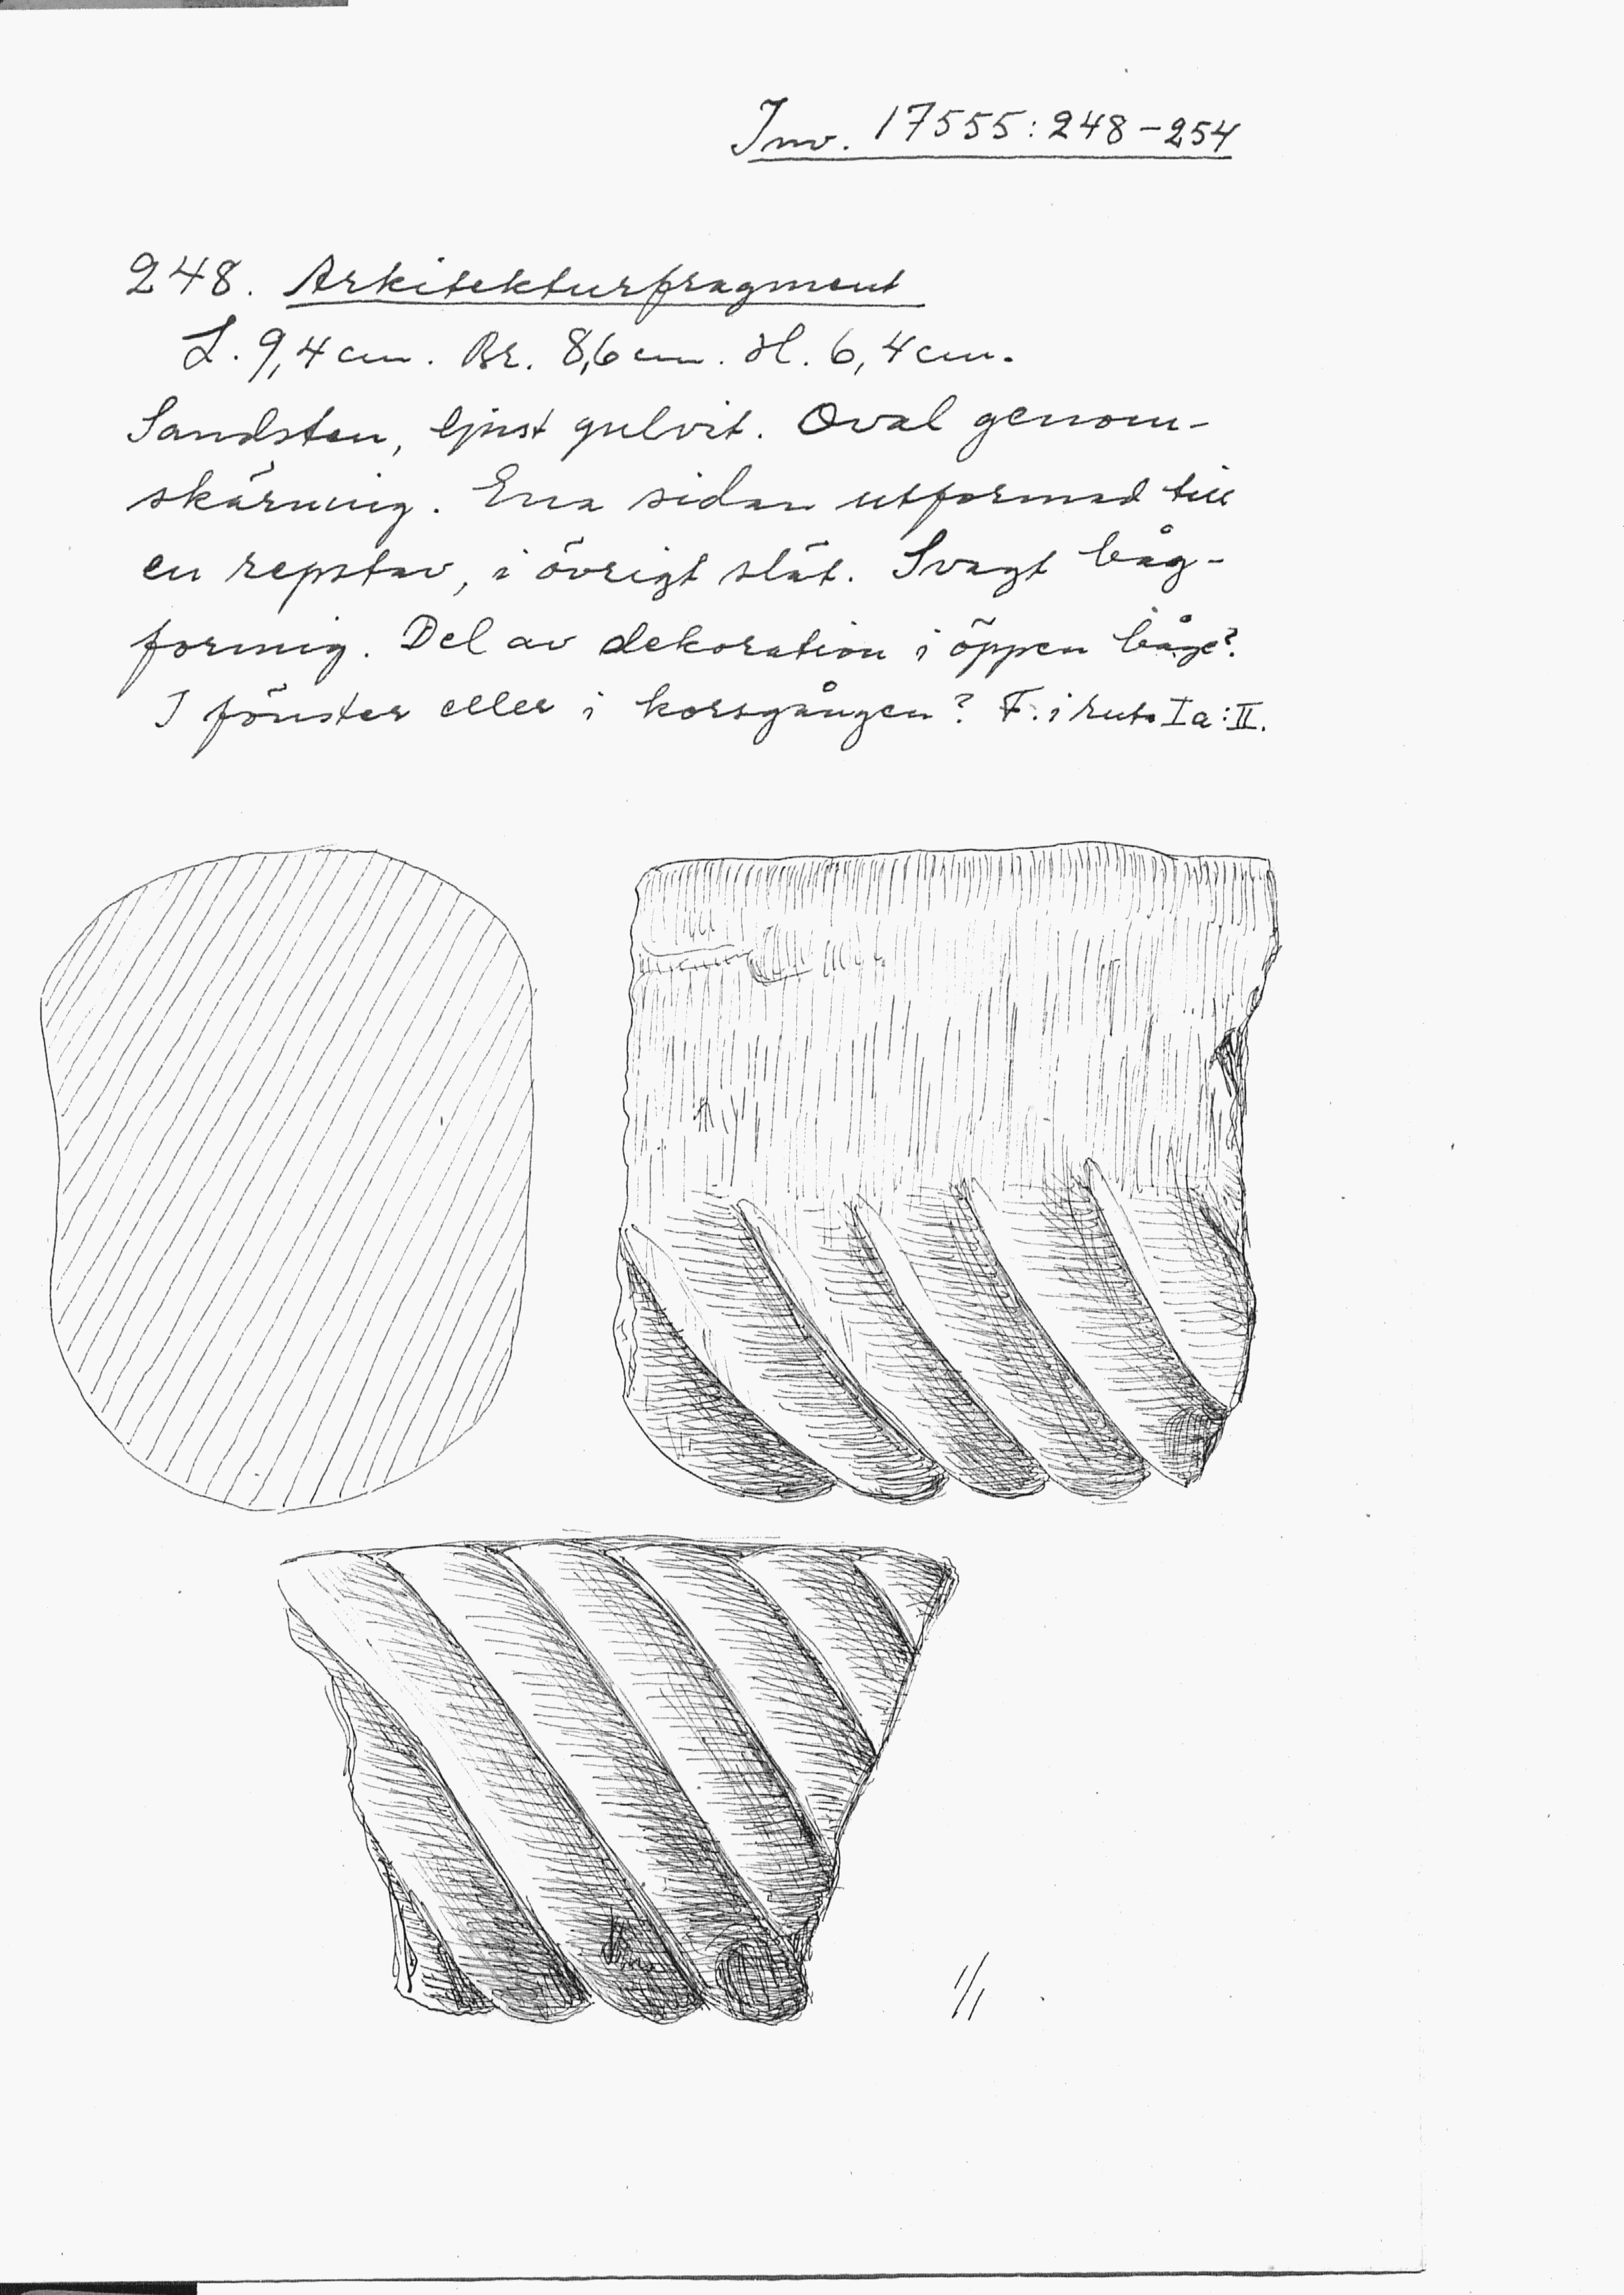 Inv. 17555:248-254
248. Arkitekturfragment
L. 9,4 cm. Br. 8,6 cm. H. 6,4 cm.
Sandsten, ljust gulvit. Oval genom-
skärning. Ena sidan utformad till
en repstav, i övrigt slät. Svagt båg-
formig. Del av dekoration i öppen båge?
I fönster eller i korsgången? F. i ruta Ia:II.
1/1